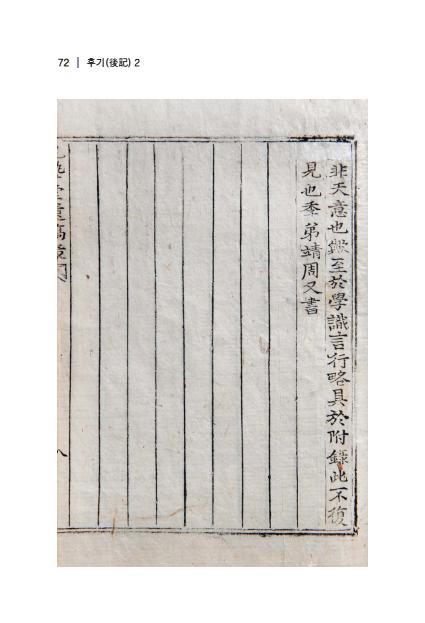 72 | 후기(後記) 2
非天意也歟至於學識言行略具於附錄此不復
見也季弟靖周又書
八